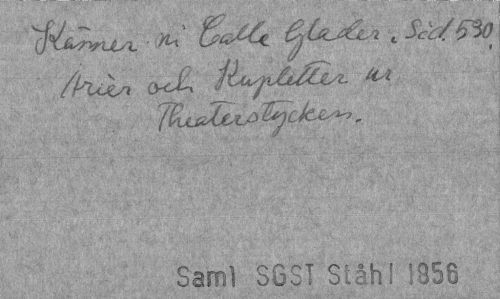 Känner ni Calle Glader. Sid. 590.
Arier och Kupletter ur
Theaterstycken.
Saml SGST Ståhl 1856